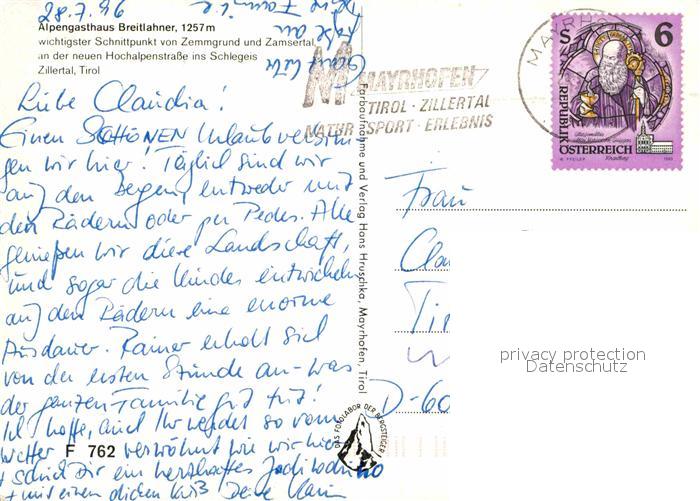 28.7.96
Alpengasthaus Breitlahner, 1257m
wichtigster Schnittpunkt von Zemmgrund und Zamsertal
an der neuen Hochalpenstraße ins Schlegeis
Zillertal, Tirol
Liebe Claudia!
Einen SCHÖNEN Urlaub verbrin-
gen wir hier! Täglich sind wir
auf den Bergen, entweder mit
den Rädern oder per Pedes. Alle
genießen wir diese Landschaft,
und sogar die Kinder entwickeln
auf den Rädern eine enorme
Ausdauer. Rainer erholt sich
von der ersten Stunde an - was
der ganzen Familie gut tut!
Ich hoffe, auch Ihr werdet so vom
Wetter verwöhnt wie wir hier
F 762
+ schick Dir ein herzhaftes
+ mit einen dicken Kuß Deine
Farbaufnahme und Verlag Hans Hruschka, Mayrhofen, Tirol
DAS FOTOLABOR DER BERGSTEIGER
MAYRHOFEN
TIROL · ZILLERTAL
NATUR SPORT · ERLEBNIS
MAYRHO
S 6
REPUBLIK
ÖSTERREICH
Frau
Cla
Ti
D-60
privacy protection
Datenschutz